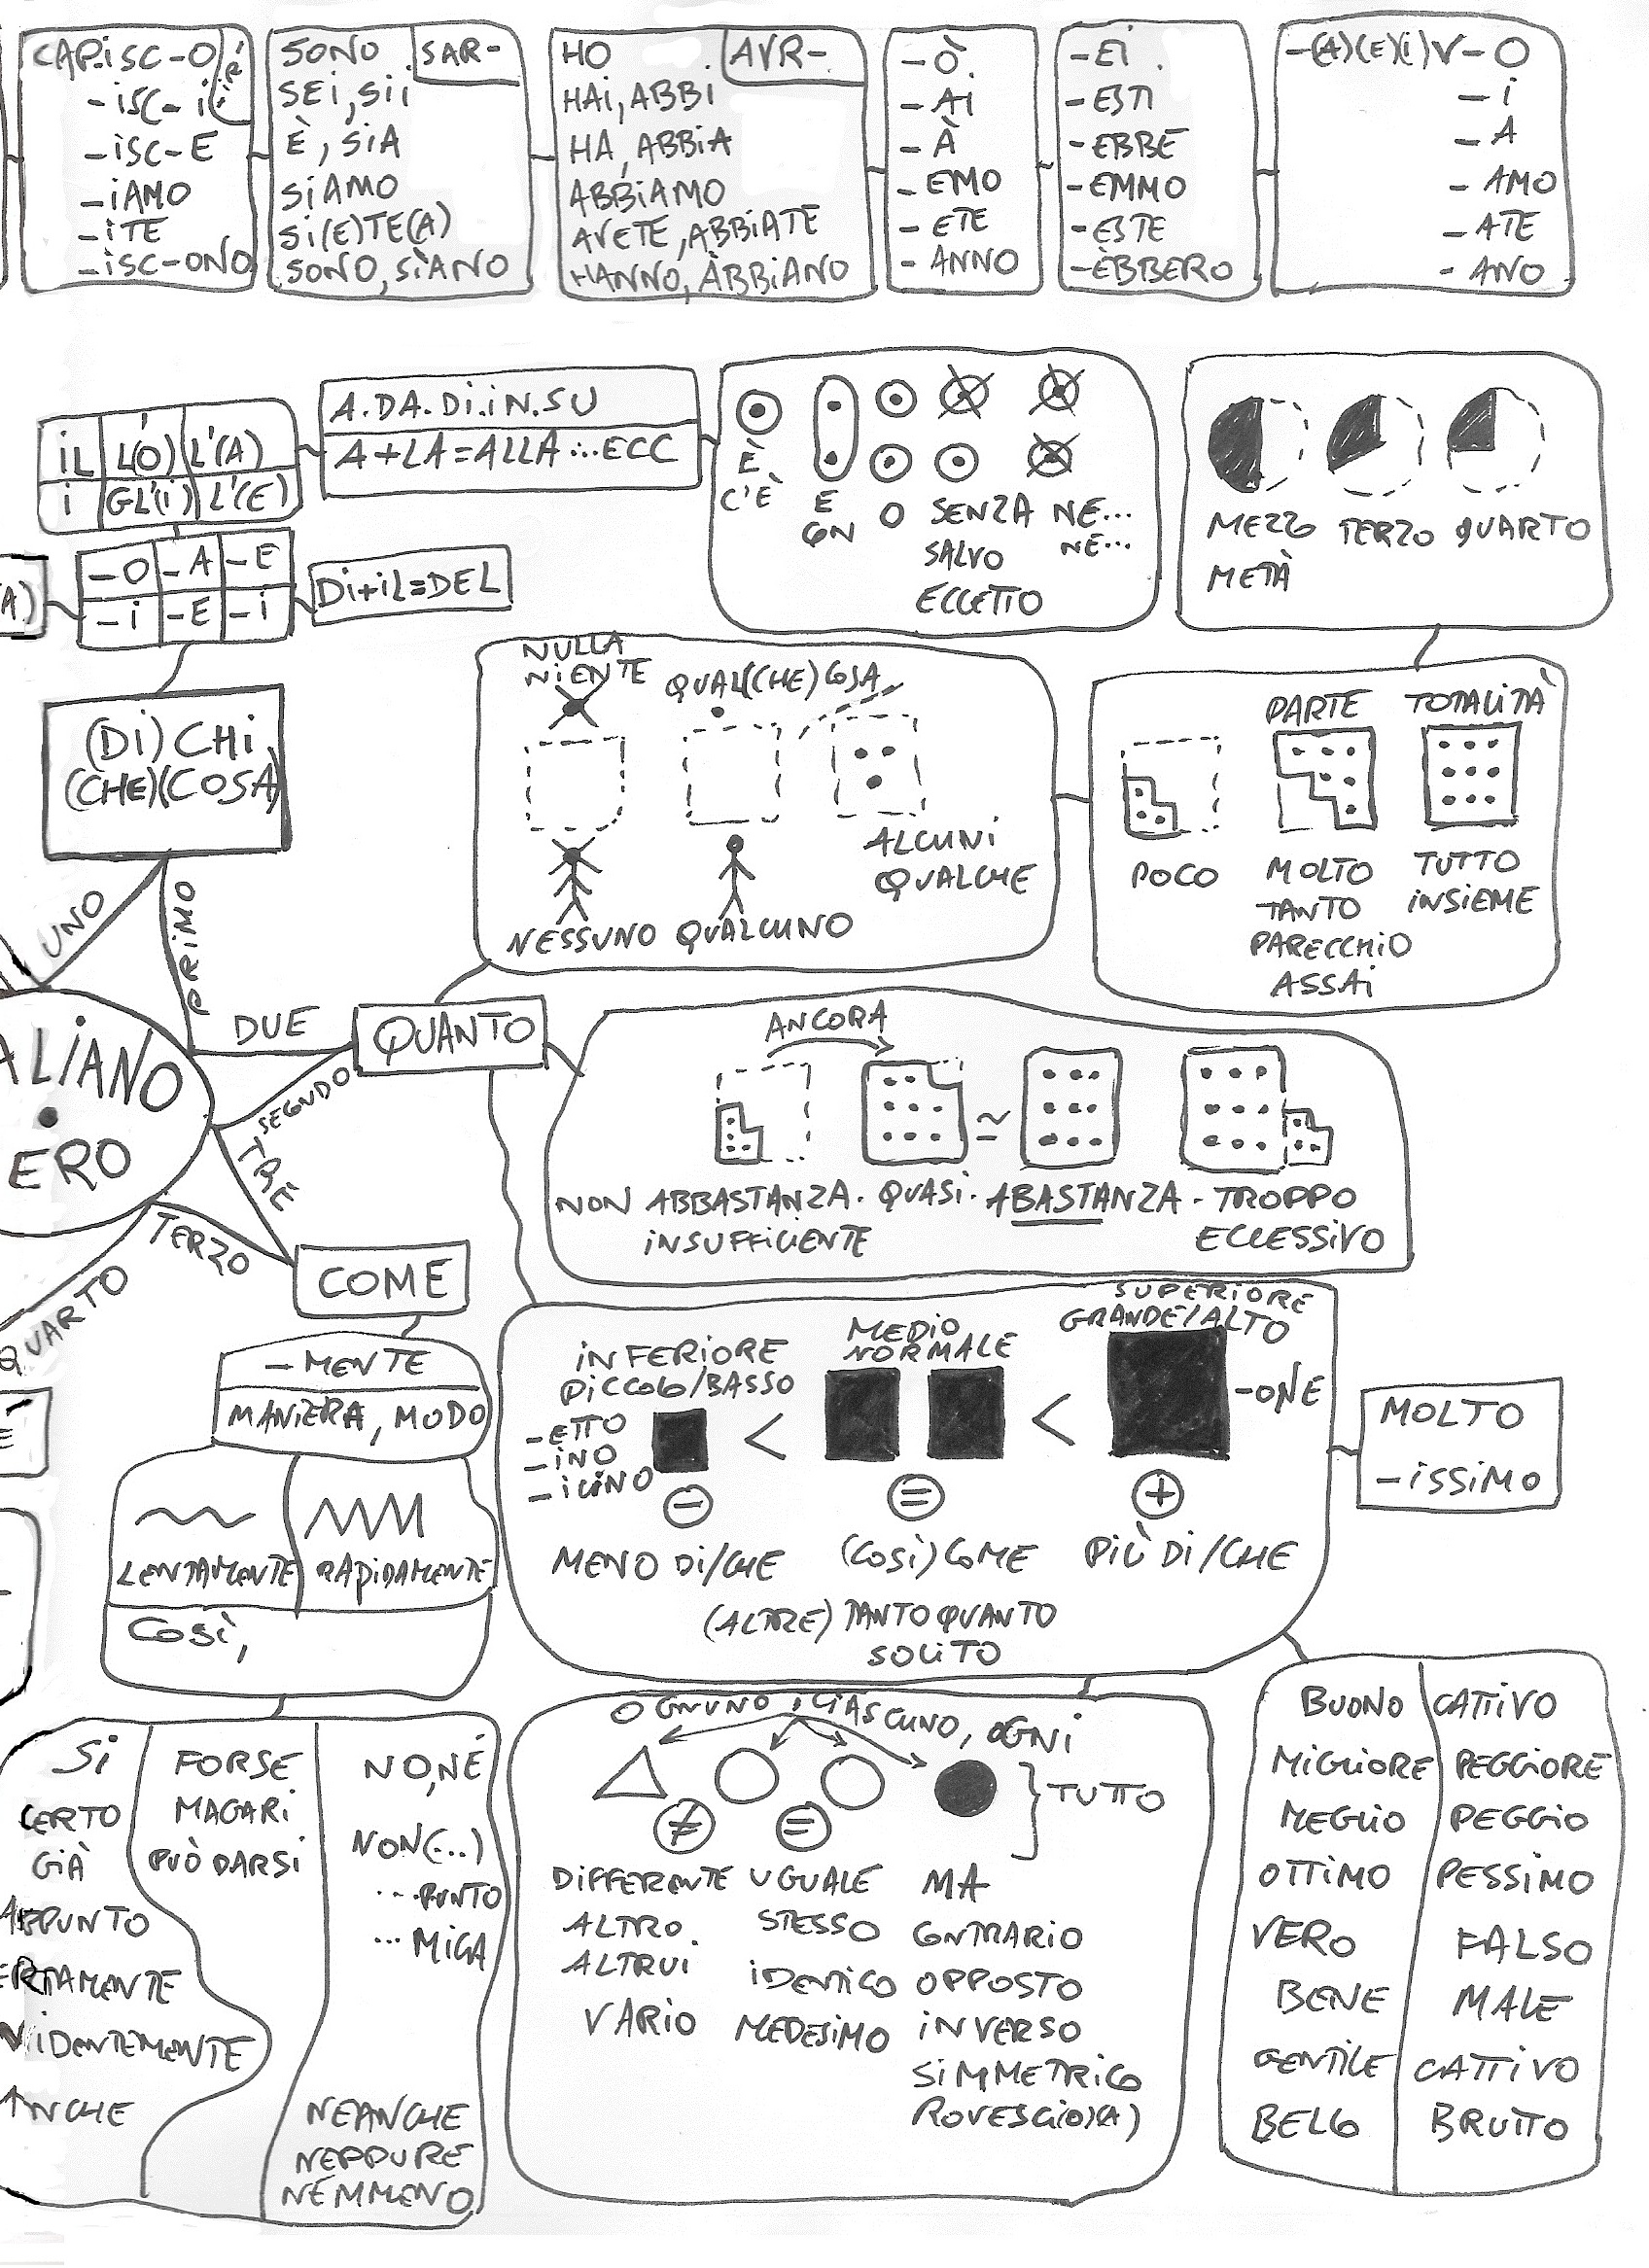 CAPISC-O
-ISC-I
-ISC-E
-IAMO
-ITE
-ISC-ONO
SONO
SAR-
SEI, SII
È, SIA
SIAMO
SI(E)TE(A)
SONO, SÌANO
HO
AVR-
HAI, ABBI
HA, ABBIA
ABBIAMO
AVETE, ABBIATE
HANNO, ÀBBIANO
-Ò
-AI
-À
-EMO
-ETE
-ANNO
-EI
-ESTI
-EBBE
-EMMO
-ESTE
-ÈBBERO
-(A)(E)(I)V-O
-I
-A
-AMO
-ATE
-ANO
IL L'(O) L'(A)
I GL'(I) L'(E)
A.DA.DI.IN.SU
A+LA=ALLA...ECC
È
C'È
E
CON
O
SENZA
SALVO
ECCETTO
NE...
NE...
MEZZO
METÀ
TERZO
QUARTO
A)
-O -A -E
-I -E -I
DI+IL=DEL
(DI) CHI
(CHE)(COSA)
NULLA
NIENTE
QUAL(CHE)COSA
ALCUNI
QUALCHE
NESSUNO QUALCUNO
PARTE
TOTALITÀ
POCO
MOLTO
TANTO
PARECCHIO
ASSAI
TUTTO
INSIEME
UNO
PRIMO
DUE
SECONDO
TRE
TERZO
QUARTO
ALIANO
ERO
QUANTO
ANCORA
≃
NON ABBASTANZA. QUASI. ABASTANZA - TROPPO
INSUFFICIENTE
ECCESSIVO
COME
-MENTE
MANIERA, MODO
LENTAMENTE
RAPIDAMENTE
COSÌ,
INFERIORE
PICCOLO/BASSO
-ETTO
-INO
-ICINO
MEDIO
NORMALE
SUPERIORE
GRANDE/ALTO
-ONE
< <
- = +
MENO DI/CHE
(COSÌ) COME
PIÙ DI/CHE
(ALTRE) TANTO QUANTO
SOLITO
MOLTO
-ISSIMO
SI
CERTO
GIÀ
APPUNTO
ERTAMENTE
VIDENTEMENTE
ANCHE
FORSE
MAGARI
PUÒ DARSI
NO, NÉ
NON(...)
...PUNTO
...MIGA
NEANCHE
NEPPURE
NEMMENO
OGNUNO, CIASCUNO, OGNI
} TUTTO
≠ =
DIFFERENTE
ALTRO.
ALTRUI
VARIO
UGUALE
STESSO
IDENTICO
MEDESIMO
MA
CONTRARIO
OPPOSTO
INVERSO
SIMMETRICO
ROVESCI(O)(A)
BUONO CATTIVO
MIGLIORE PEGGIORE
MEGLIO PEGGIO
OTTIMO PESSIMO
VERO FALSO
BENE MALE
GENTILE CATTIVO
BELLO BRUTTO